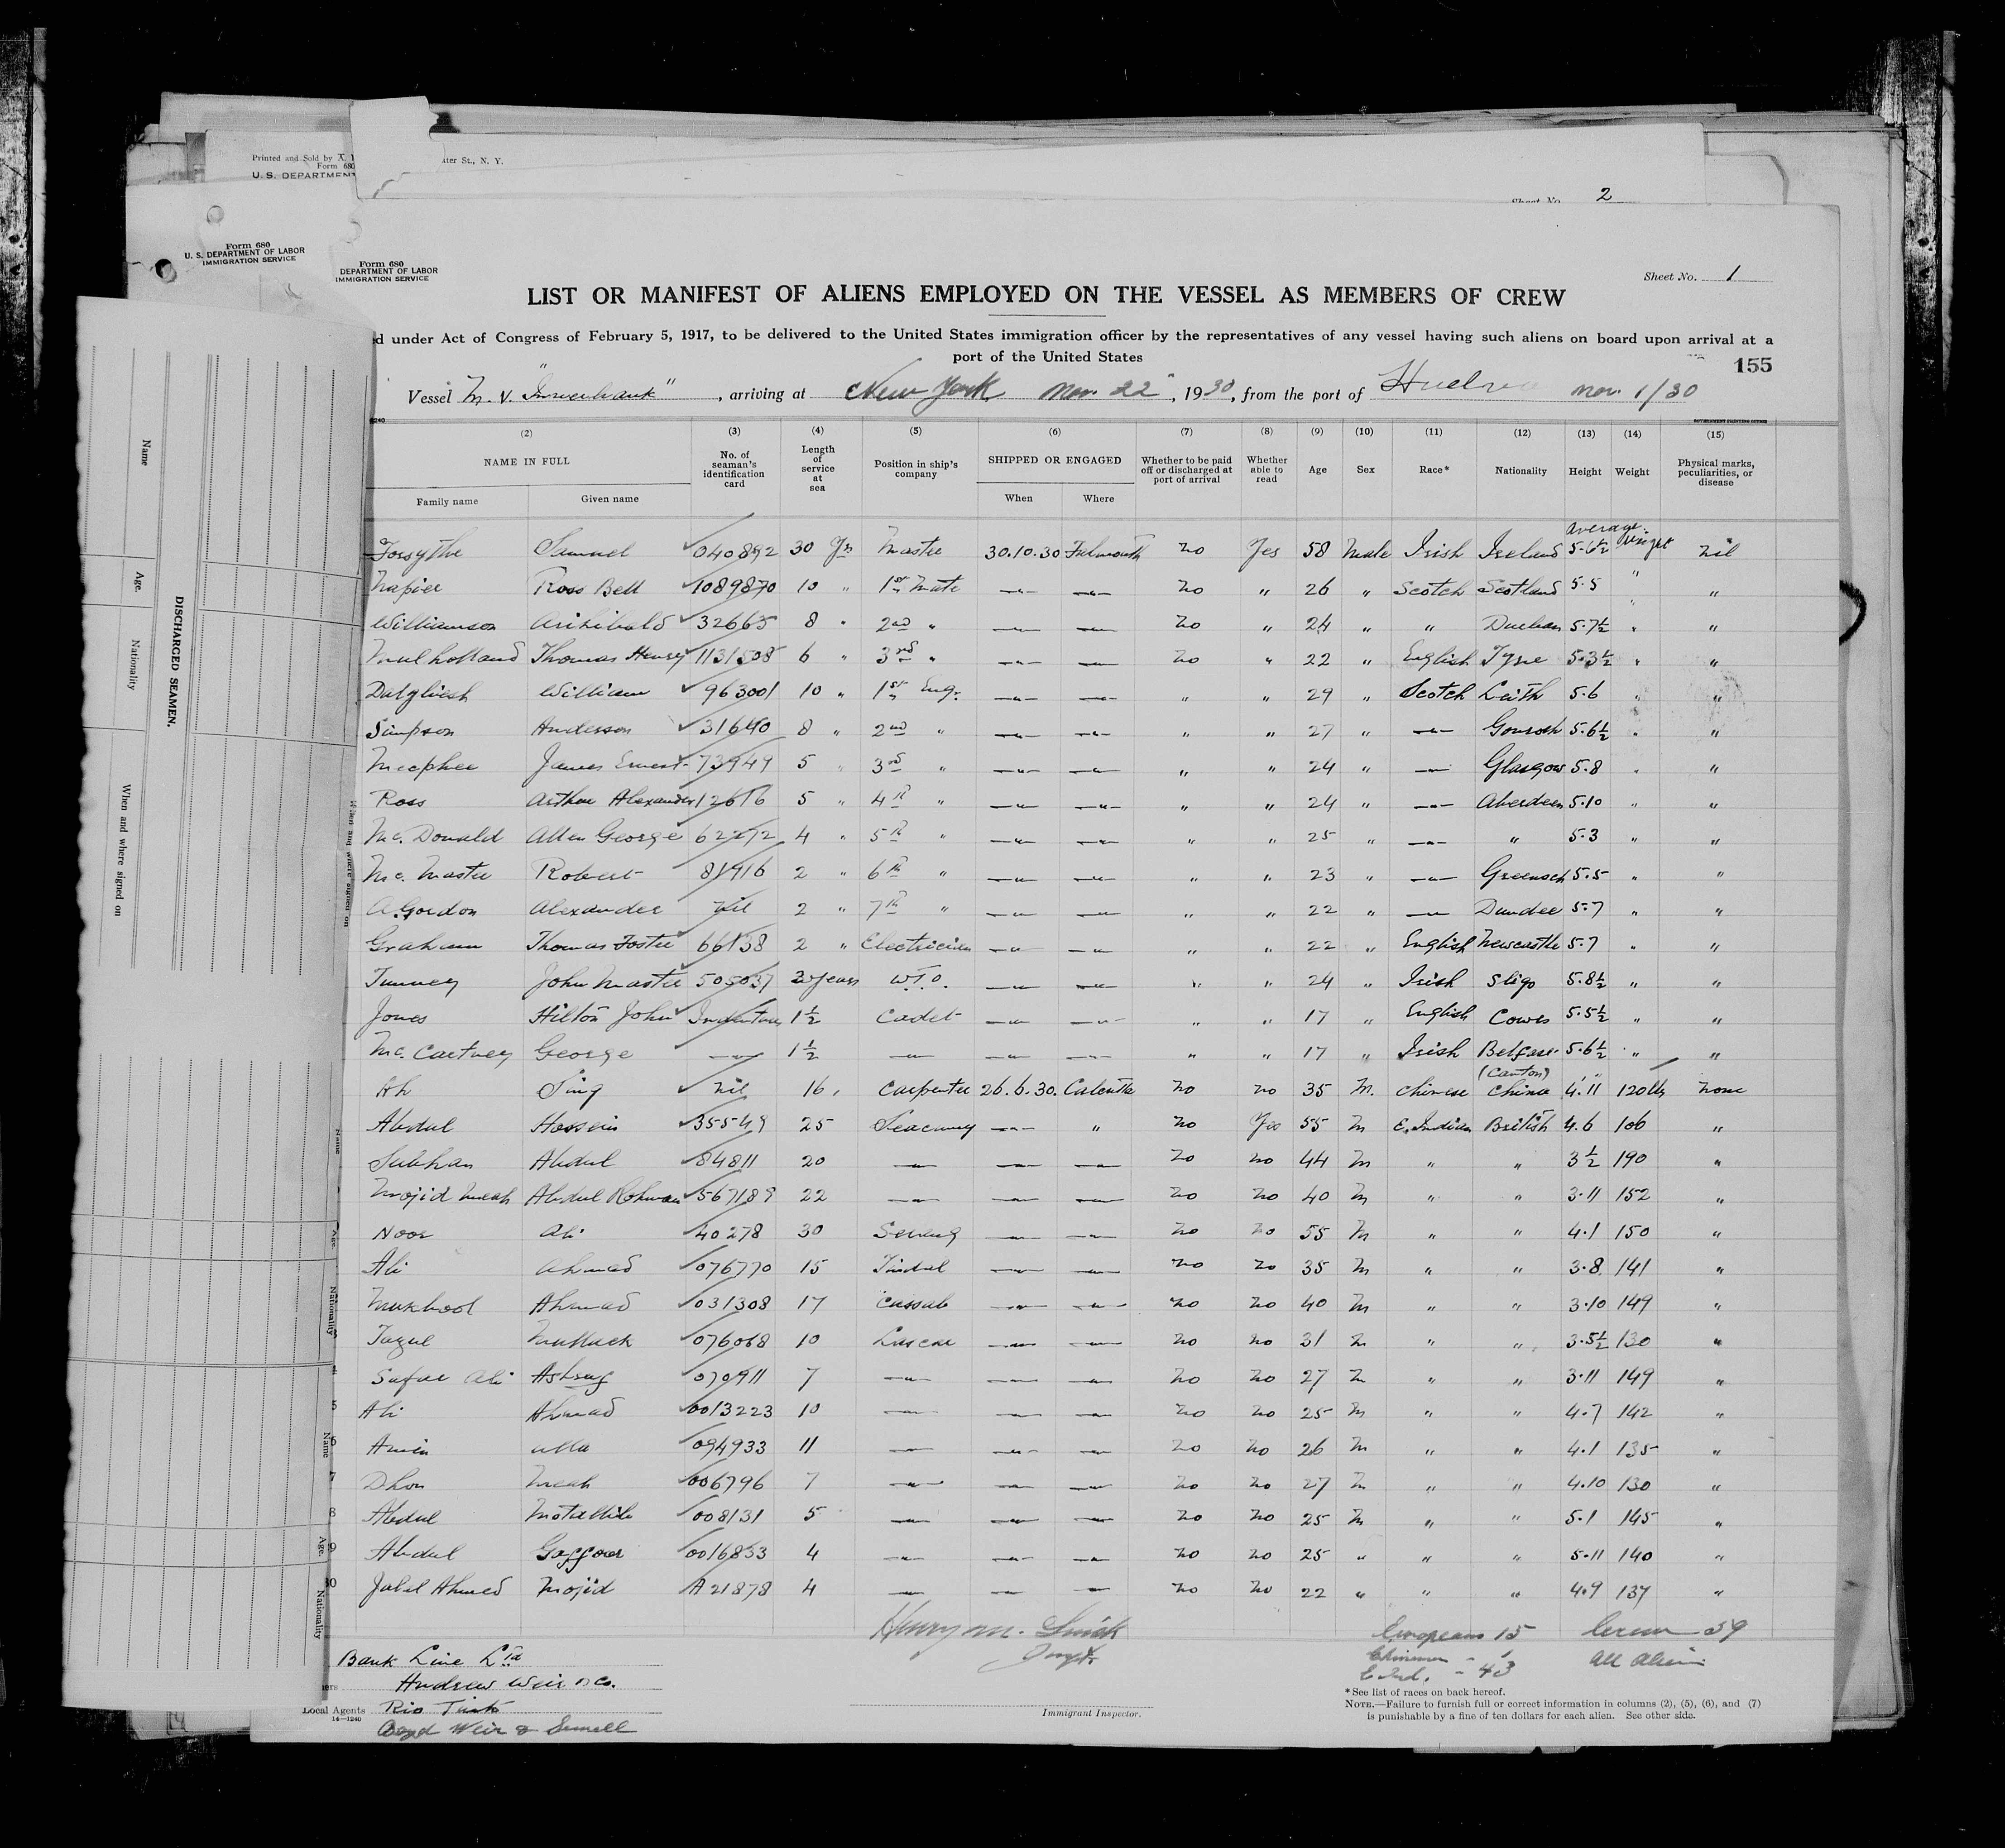 Printed and Sold by A. I
Form 680
U. S. DEPARTMENT
ater St., N. Y.
Sheet No. 2
Form 680
U. S. DEPARTMENT OF LABOR
IMMIGRATION SERVICE
Form 680
DEPARTMENT OF LABOR
IMMIGRATION SERVICE
Sheet No. 1
LIST OR MANIFEST OF ALIENS EMPLOYED ON THE VESSEL AS MEMBERS OF CREW
d under Act of Congress of February 5, 1917, to be delivered to the United States immigration officer by the representatives of any vessel having such aliens on board upon arrival at a
port of the United States
155
Vessel M. V. "Inverbank", arriving at New York, Nov. 22, 1930, from the port of Huelva Nov. 1/30
(2) (3) (4) (5) (6) (7) (8) (9) (10) (11) (12) (13) (14) (15)
NAME IN FULL No. of seaman's identification card Length of service at sea Position in ship's company SHIPPED OR ENGAGED Whether to be paid off or discharged at port of arrival Whether able to read Age Sex Race* Nationality Height Weight Physical marks, peculiarities, or disease
Family name Given name When Where
average
Forsythe Samuel 040892 30 Yrs Master 30.10.30 Falmouth No Yes 58 Male Irish Ireland 5-6½ weight nil
Napier Ross Bell 1089870 10 " 1st Mate —"— —"— No " 26 " Scotch Scotland 5.5 " "
Williamson Archibald 32665 8 " 2nd " —"— —"— No " 24 " " 5.7½ " "
Mulholland Thomas Henry 1131508 6 " 3rd " —"— —"— No " 22 " English 5.3½ " "
Dalgliesh William 963001 10 " 1st Eng. —"— —"— " " 29 " Scotch Leith 5.6 " "
Simpson Anderson 31640 8 " 2nd " —"— —"— " " 27 " —"— Gourock 5.6½ " "
Macphee James Ernest 73949 5 " 3rd " —"— —"— " " 24 " —"— Glasgow 5.8 " "
Ross Arthur Alexander 12616 5 " 4th " —"— —"— " " 24 " —"— Aberdeen 5.10 " "
Mc. Donald Allen George 4 " 5th " —"— —"— " " 25 " —"— " 5.3 " "
Mc. Master Robert 81916 2 " 6th " —"— —"— " " 23 " —"— Greenock 5.5 " "
A. Gordon Alexander nil 2 " 7th " —"— —"— " " 22 " —"— Dundee 5.7 " "
Graham Thomas Foster 66138 2 " Electrician —"— —"— " " 22 " English Newcastle 5.7 " "
Tunney John Master 505037 years W.T.O. —"— —"— " " 24 " Irish Sligo 5.8½ " "
Jones Hilton John Indenture 1½ Cadet —"— —"— " " 17 " English Cowes 5.5½ " "
Mc. Cartney George —"— 1½ —"— —"— —"— " " 17 " Irish Belfast 5.6½ " "
(Canton)
Ah Sing nil 16 Carpenter 26.6.30. Calcutta No No 35 M. Chinese China 4.11 120 lbs None
Abdul Hossein 35549 25 —"— " No Yes 55 M E. Indian British 4.6 106 "
Subhan Abdul 84811 20 —"— —"— —"— No No 44 M " " 3½ 190 "
Mojid Meah Abdul Rohman 567189 22 —"— —"— —"— No No 40 M " " 3.11 152 "
Noor Ali 40278 30 Serang —"— —"— No No 55 M " " 4.1 150 "
Ali Ahmad 076770 15 Tindal —"— —"— No No 35 M " " 3.8 141 "
Mukbool Ahmad 031308 17 Cassab —"— —"— No No 40 M " " 3.10 149 "
Tazul Mulluck 076068 10 Lascar —"— —"— No No 31 M " " 3.5½ 130 "
Safar Ali Ashraf 070911 7 —"— —"— —"— No No 27 M " " 3.11 149 "
Ali Ahmad 0013223 10 —"— —"— —"— No No 25 M " " 4.7 142 "
Amin ulla 094933 11 —"— —"— —"— No No 26 M " " 4.1 135 "
Dhon Meah 006796 7 —"— —"— —"— No No 27 M " " 4.10 130 "
Abdul Motallib 008131 5 —"— —"— —"— No No 25 M " " 5.1 145 "
Abdul Goffoor 0016833 4 —"— —"— —"— No No 25 " " " 5.11 140 "
Jalil Ahmed Mojid A 21878 4 —"— —"— —"— No No 22 " " " 4.9 137 "
Henry M. Smith
Inspt.
Europeans 15
Chinese - 1
E. Ind. - 43
Crew 59
All Alien
Bank Line Ltd
Andrew Weir & Co.
Local Agents Rio Tinto
Boyd Weir & Sewell
14—1240
Immigrant Inspector.
*See list of races on back hereof.
NOTE.—Failure to furnish full or correct information in columns (2), (5), (6), and (7)
is punishable by a fine of ten dollars for each alien. See other side.
DISCHARGED SEAMEN.
Name
Age.
Nationality
When and where signed on
Name
Age.
Nationality
Name
Age.
Nationality